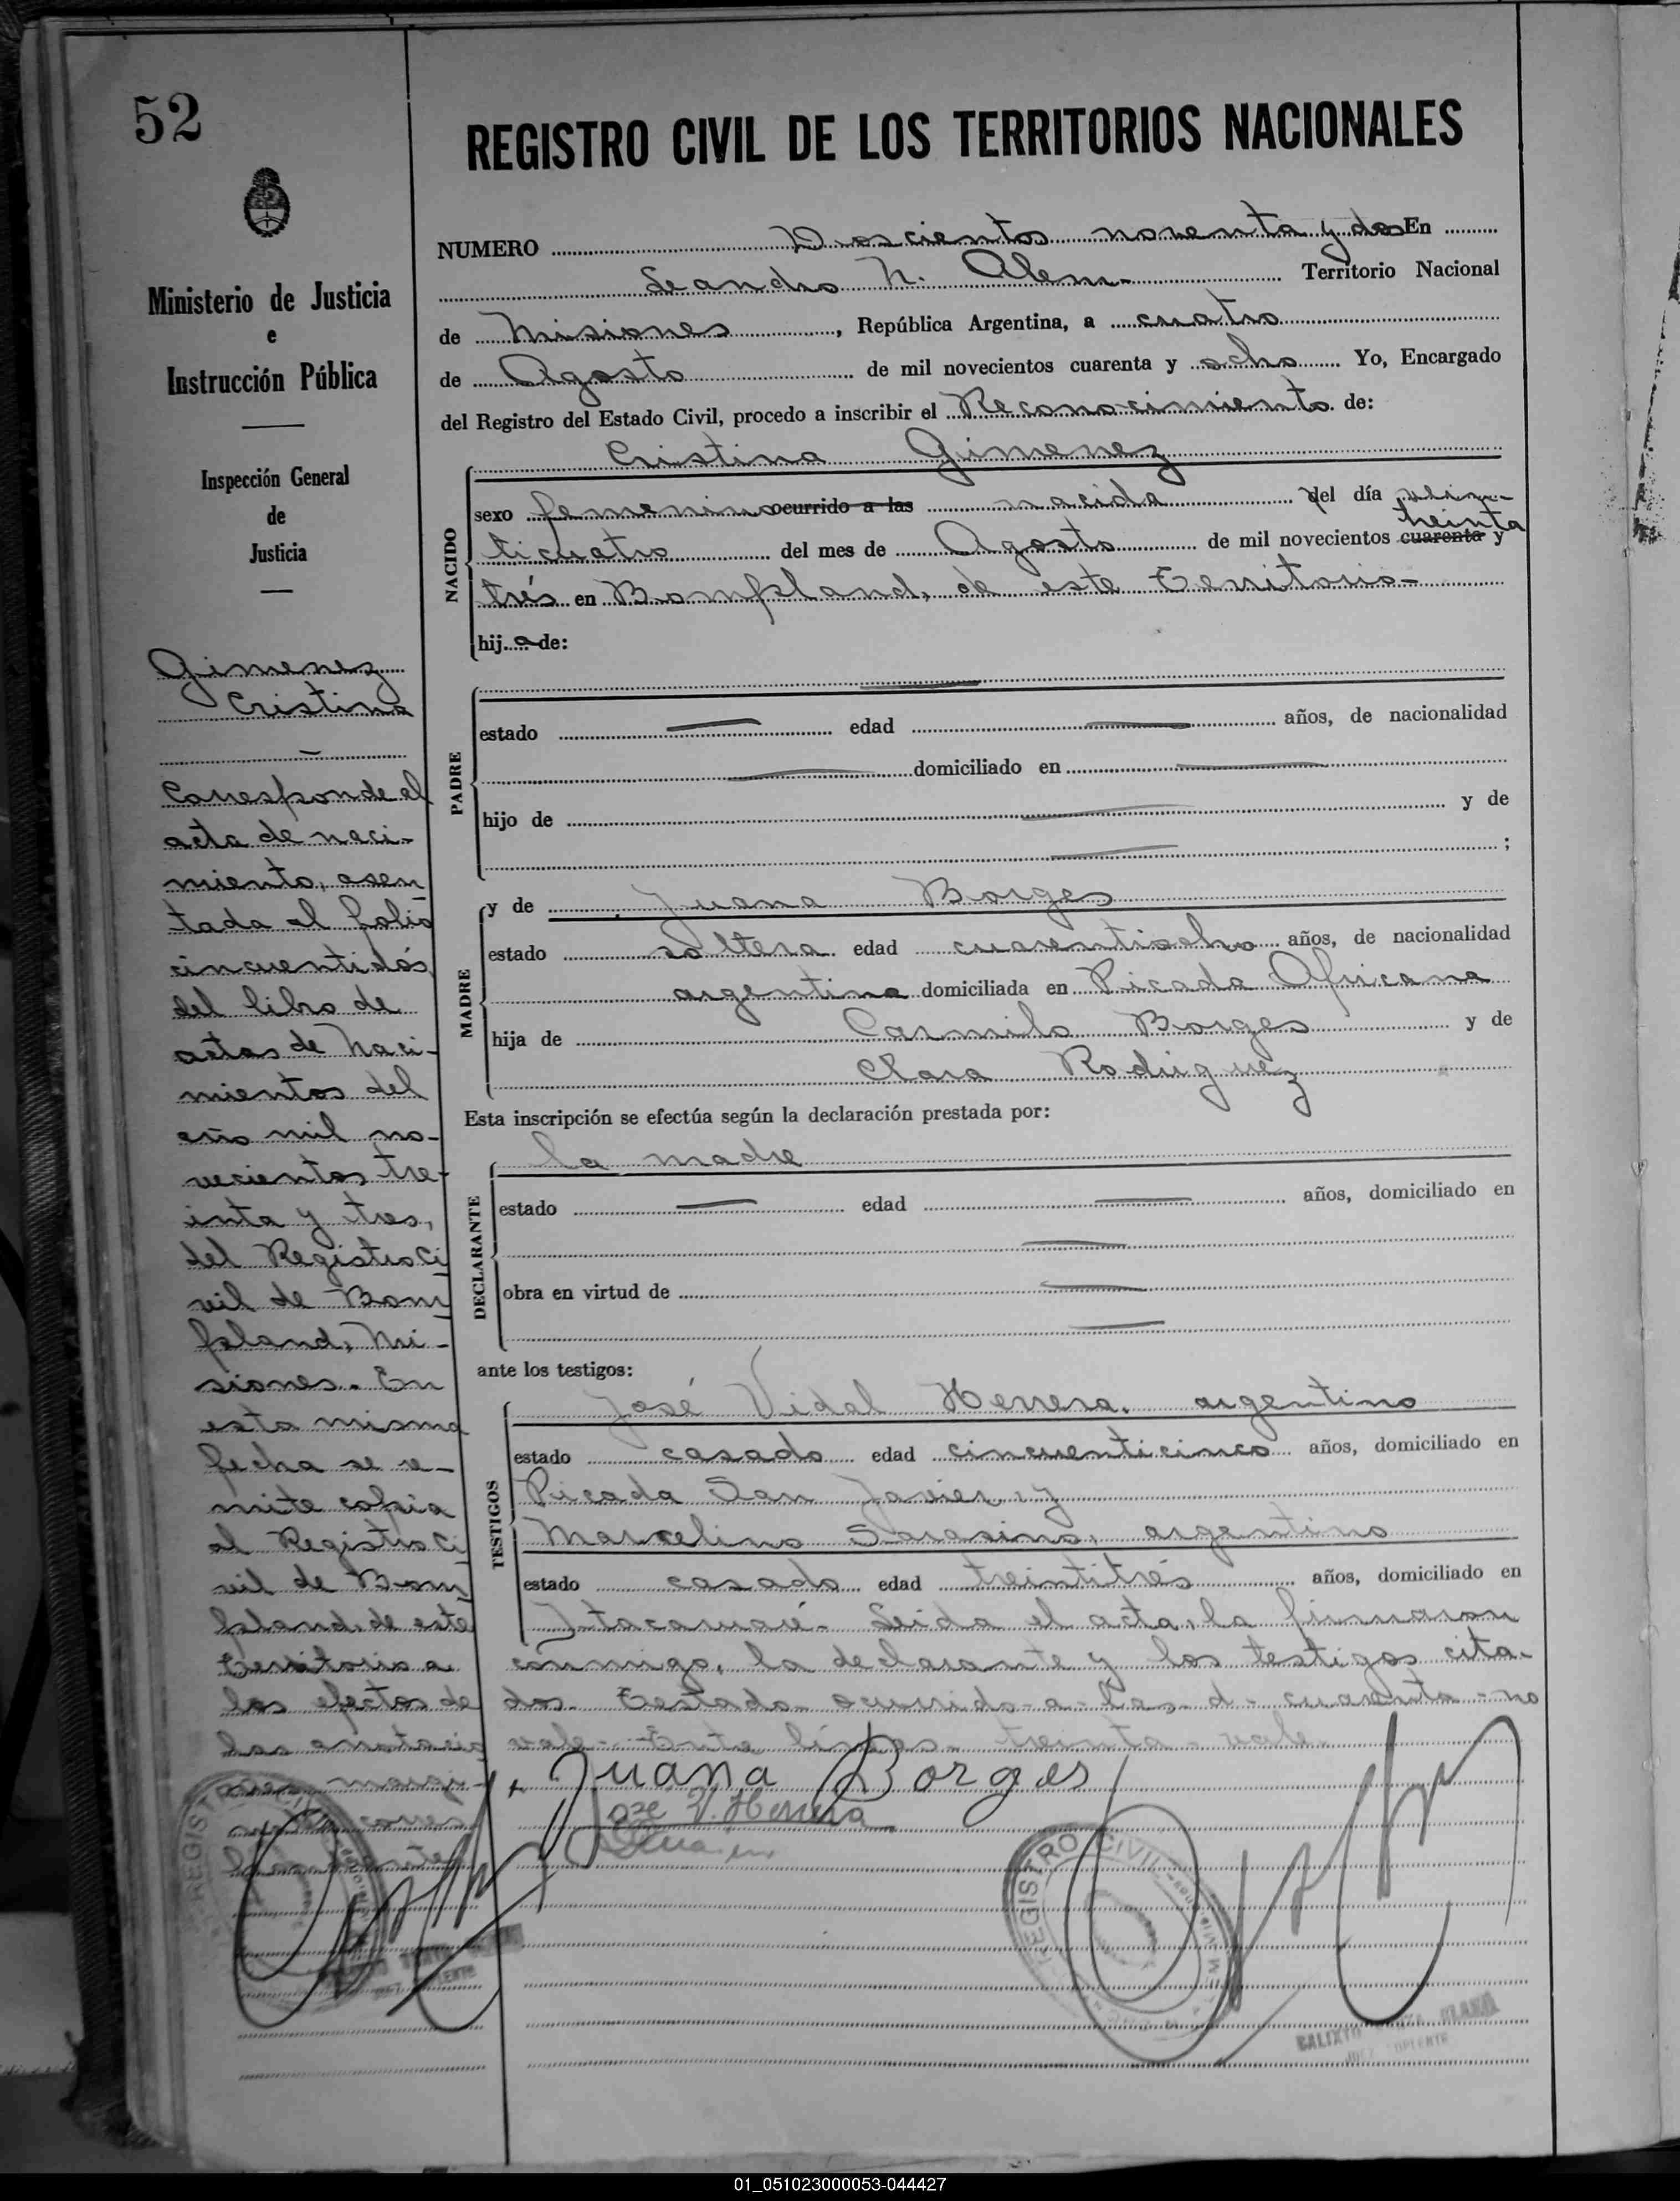 52
REGISTRO CIVIL DE LOS TERRITORIOS NACIONALES
Ministerio de Justicia
e
Instrucción Pública
Inspección General
de
Justicia
Gimenez
Cristina
Corresponde el
acta de naci-
miento, asen
tada al folio
cincuentidós
del libro de
actas de Naci-
mientos del
año mil no-
vecientos tre-
inta y tres,
del Registro Ci
vil de Bom
pland, Mi-
siones. En
esta misma
fecha se re-
mite copia
al Registro Ci
vil de Bom
pland, de este
Territorio a
los efectos de
las anotacio
NUMERO Doscientos noventa y dos En
Leandro N. Alem- Territorio Nacional
de Misiones, República Argentina, a cuatro
de Agosto de mil novecientos cuarenta y ocho Yo, Encargado
del Registro del Estado Civil, procedo a inscribir el Reconocimiento de:
Cristina Gimenez
NACIDO
sexo femenino ocurrido a las nacida del día vein-
treinta
ticuatro del mes de Agosto de mil novecientos cuarenta y
trés en Bompland, de este Territorio-
hija de:
PADRE
estado edad años, de nacionalidad
domiciliado en
hijo de y de
;
MADRE
y de Juana Borges
estado soltera edad cuarentiocho años, de nacionalidad
argentina domiciliada en Picada Africana
hija de Carmilo Borges y de
Clara Rodriguez
Esta inscripción se efectúa según la declaración prestada por:
DECLARANTE
la madre
estado edad años, domiciliado en
obra en virtud de
ante los testigos:
TESTIGOS
José Vidal Herrera, argentino
estado casado edad cincuenticinco años, domiciliado en
Picada San Javier, y
Marcelino Sarasino, argentino
estado casado edad treintitrés años, domiciliado en
Itacaruaré. Leida el acta, la firmaron
conmigo, la declarante y los testigos cita-
dos. Testado- ocurrido-a-las-d- cuarenta-no
vale- Entre líneas- treinta- vale.
Juana Borges
Jose V. Herrera
REGISTRO CIVIL
CALIXTO
JUEZ SUPLENTE
01_051023000053-044427